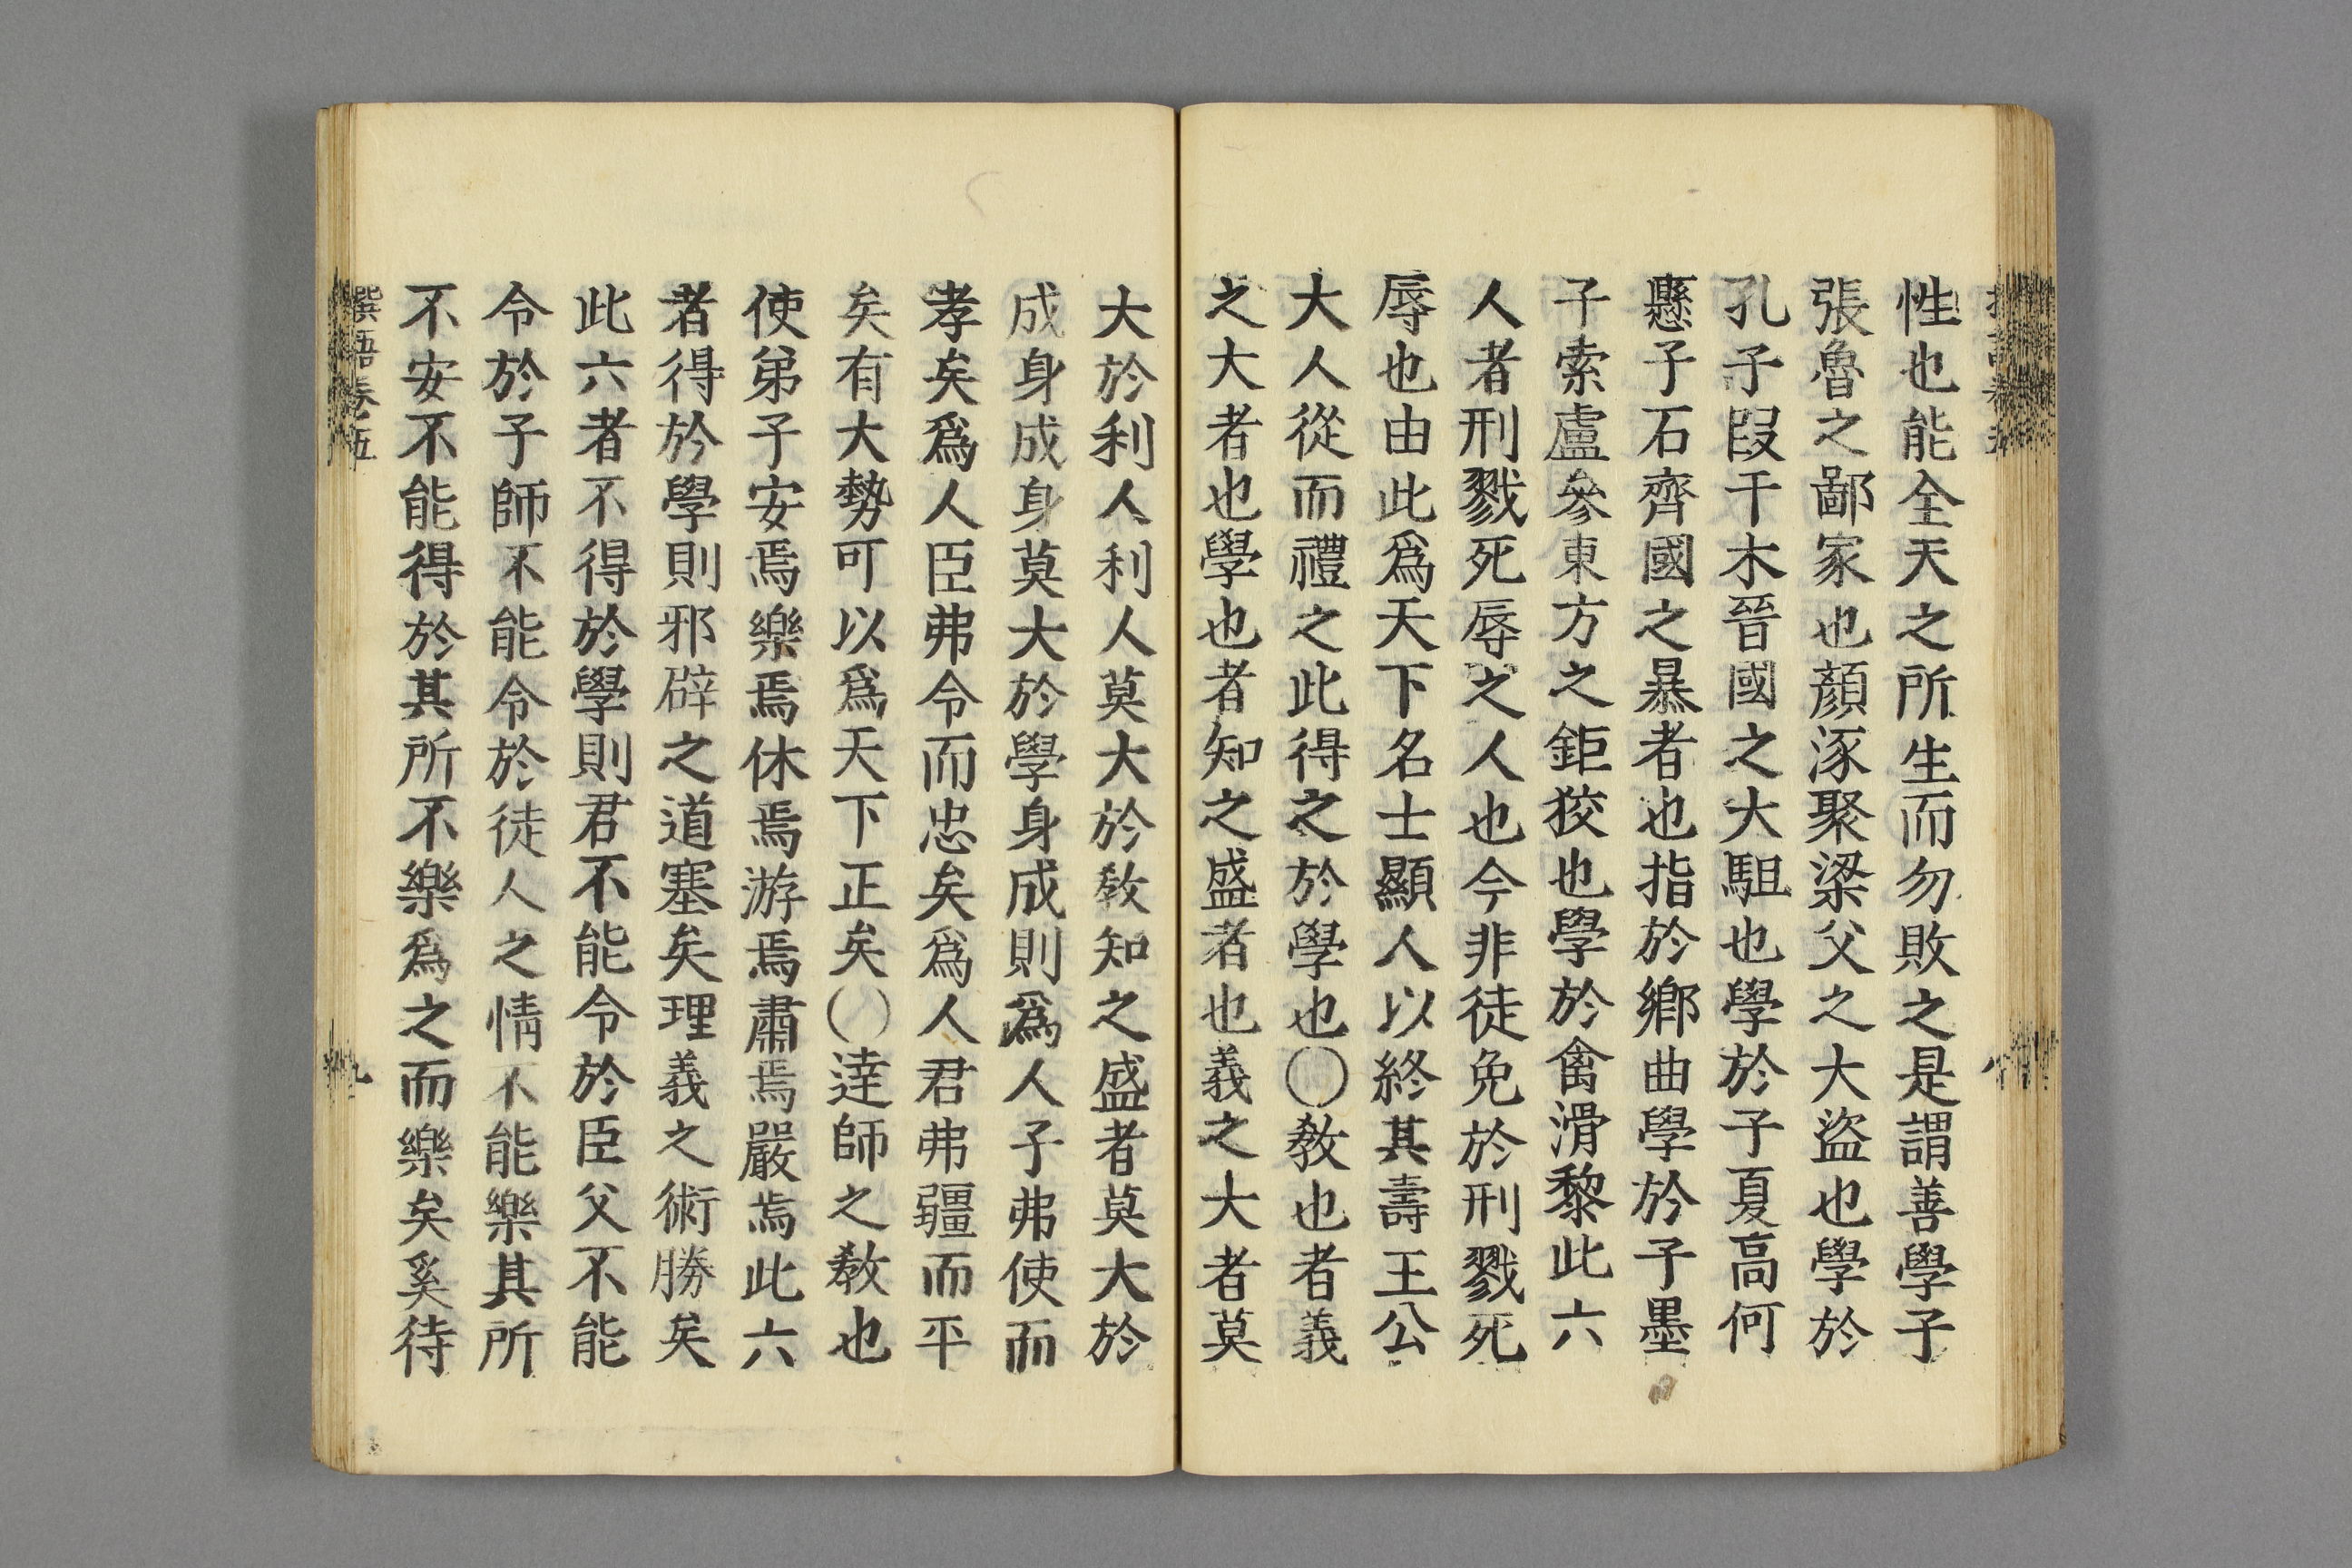 性也能全天之所生而勿敗之是謂善學子
張魯之鄙家也顏涿聚梁父之大盜也學於
孔子段干木晉國之大駔也學於子夏高何
懸子石齊國之暴者也指於鄉曲學於子墨
子索盧參東方之鉅狡也學於禽滑黎此六
人者刑戮死辱之人也今非徒免於刑戮死
辱也由此爲天下名士顯人以終其壽王公
大人從而禮之此得之於學也〇敎也者義
之大者也學也者知之盛者也義之大者莫
大於利人利人莫大於敎知之盛者莫大於
成身成身莫大於學身成則爲人子弗使而
孝矣爲人臣弗令而忠矣爲人君弗疆而平
矣有大勢可以爲天下正矣〇逹師之敎也
使弟子安焉樂焉休焉游焉肅焉嚴焉此六
者得於學則邪辟之道塞矣理義之術勝矣
此六者不得於學則君不能令於臣父不能
令於子師不能令於徒人之情不能樂其所
不安不能得於其所不樂爲之而樂矣奚待
語卷五
九